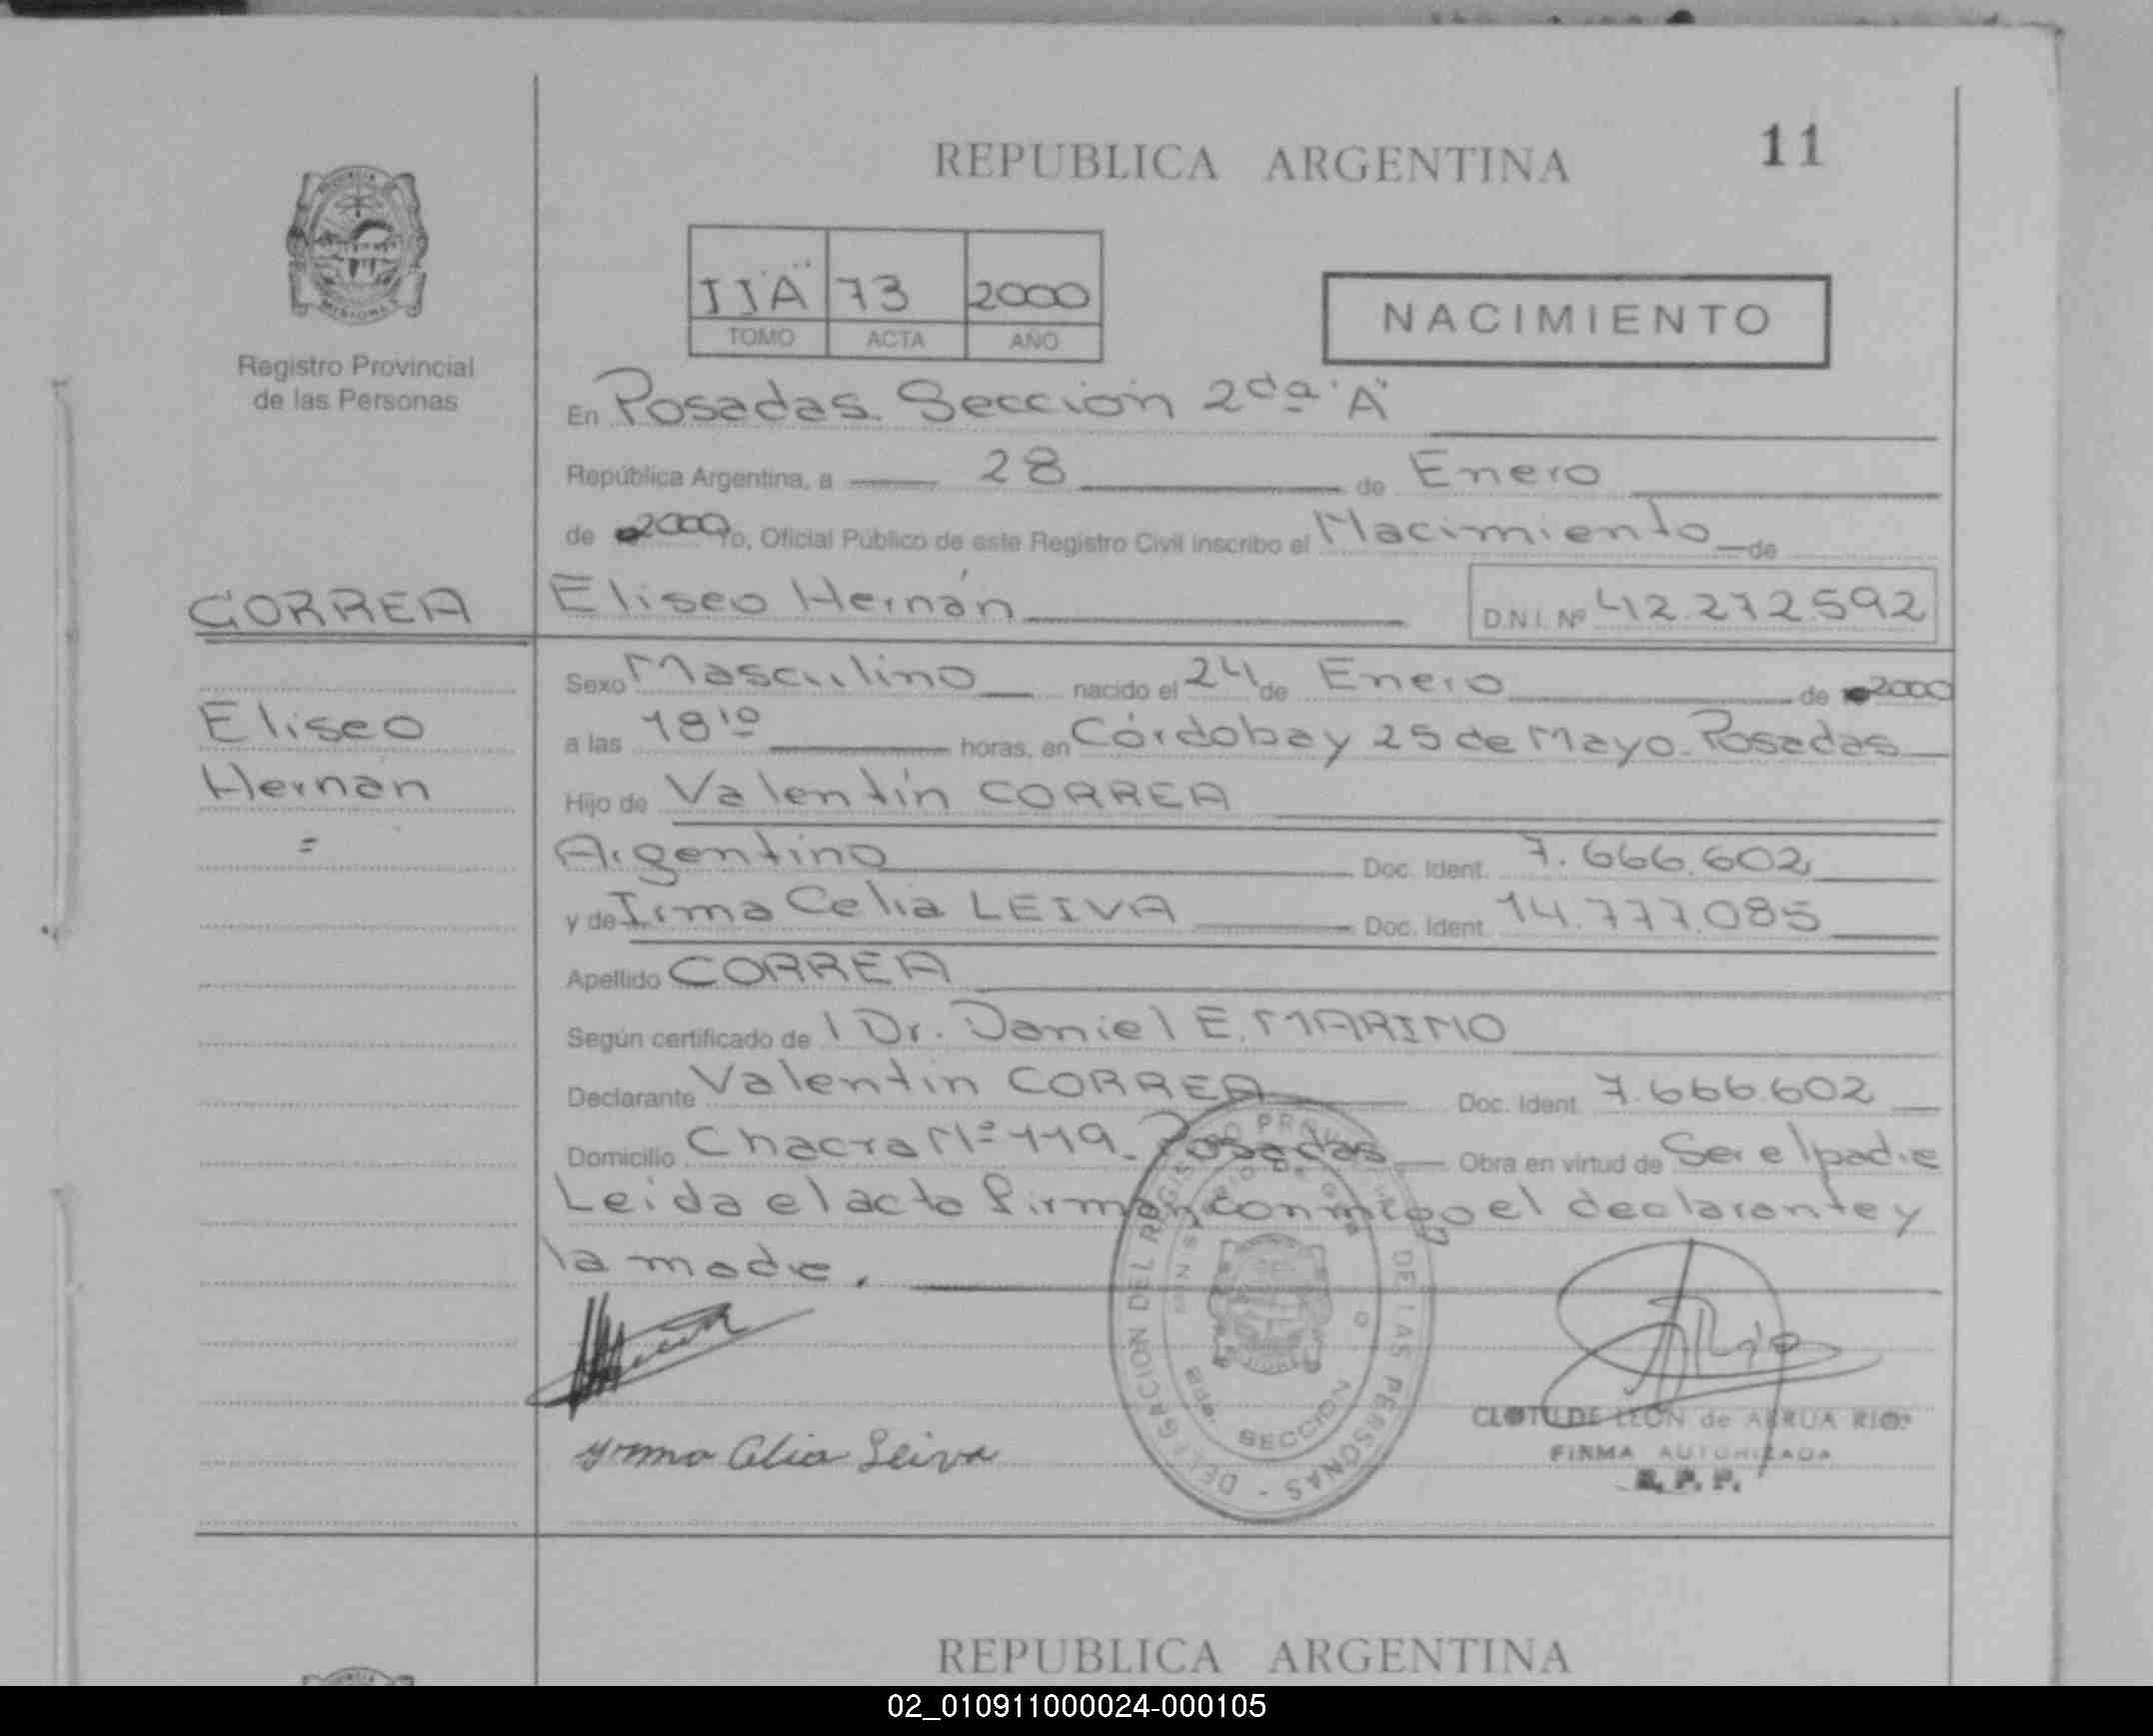 REPUBLICA ARGENTINA
11
PROVINCIA
MISIONES
Registro Provincial
de las Personas
IIA" 73 2000
TOMO ACTA AÑO
NACIMIENTO
En Posadas. Sección 2da "A"
República Argentina, a 28 de Enero
de 2000 Yo, Oficial Público de este Registro Civil inscribo el Nacimiento de
CORREA
Eliseo Hernán D.N.I. Nº 42.272.592
Sexo Masculino nacido el 24 de Enero de 2000
Eliseo
a las 18 10 horas, en Córdoba y 25 de Mayo. Posadas
Hernan
Hijo de Valentín CORREA
=
Argentino Doc. Ident. 7.666.602
y de Irma Celia LEIVA Doc. Ident. 14.777.085
Apellido CORREA
Según certificado de l Dr. Daniel E. MARINO
Declarante Valentin CORREA Doc. Ident. 7.666.602
Domicilio Chacra Nº 119. Posadas Obra en virtud de Ser el padre
Leida el acta firman conmigo el declarante y
la madre.
DELEGACION DEL REGISTRO PROVINCIAL DE LAS PERSONAS -
MINISTERIO DE GOBIERNO
2da. SECCION
Yrma Celia Leiva
CLOTILDE LEON de ARRUA RIOS
FIRMA AUTORIZADA
R. P. P.
REPUBLICA ARGENTINA
02_010911000024-000105